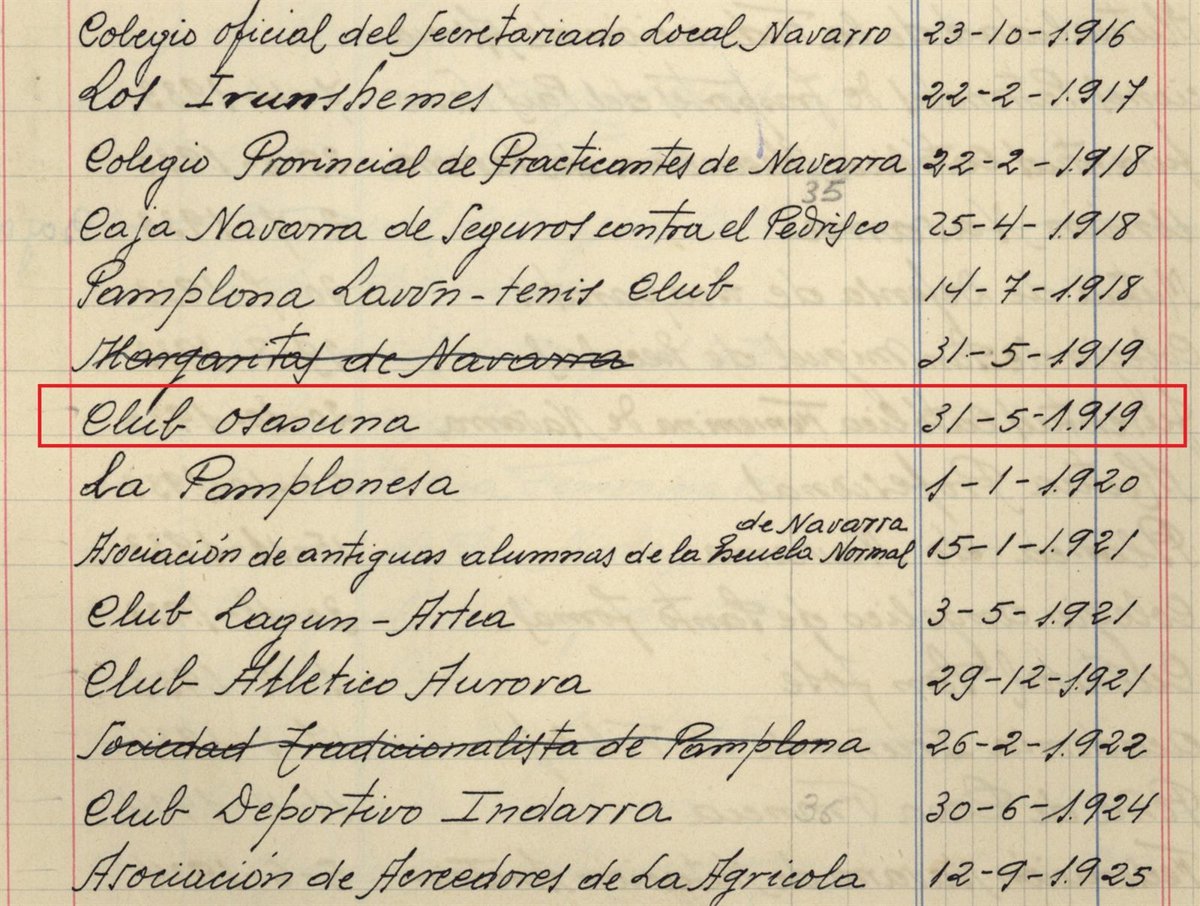 Colegio oficial del Secretariado Local Navarro 23-10-1.916
Los Irunshemes 22-2-1.917
Colegio Provincial de Practicantes de Navarra 22-2-1.918
35
Caja Navarra de Seguros contra el Pedrisco 25-4-1.918
Pamplona Lavón-tenis Club 14-7-1.918
Margaritas de Navarra 31-5-1.919
Club Osasuna 31-5-1.919
La Pamplonesa 1-1-1.920
de Navarra
Asociación de antiguas alumnas de la Escuela Normal 15-1-1.921
Club Lagun-Artea 3-5-1.921
Club Atletico Aurora 29-12-1.921
Sociedad Tradicionalista de Pamplona 26-2-1.922
Club Deportivo Indarra 30-6-1.924
36
Asociación de Acreedores de La Agricola 12-9-1.925